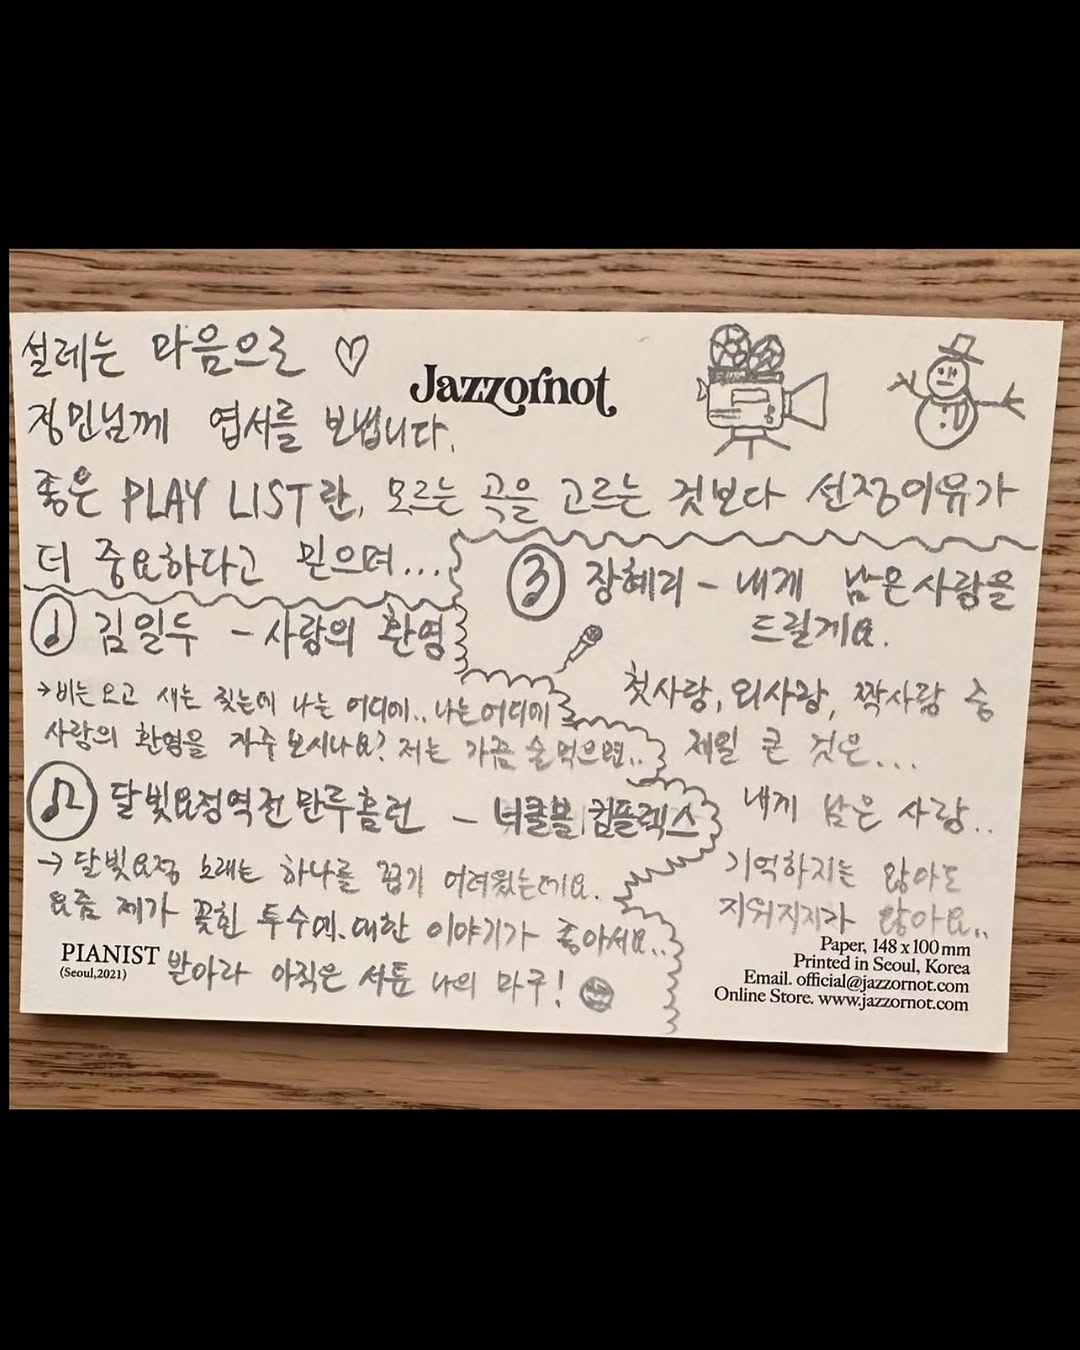 설레는 마음으로 ♡
Jazzornot
정민님께 엽서를 보냅니다.
좋은 PLAY LIST란, 모르는 곡을 고르는 것보다 선정이유가
더 중요하다고 믿으며...
① 김일두 - 사랑의 환영
→ 비는 오고 새는 짖는데 나는 어디에.. 나는 어디에
사랑의 환영을 자주 보시나요? 저는 가끔 술 먹으면..
② 달빛요정역전만루홈런 - 너클볼 컴플렉스
→ 달빛요정 노래는 하나를 꼽기 어려웠는데요.
요즘 제가 꽂힌 투수에 대한 이야기가 좋아서요..
받아라 아직은 서툰 나의 마구!
③ 장혜리 - 내게 남은 사랑을
드릴게요.
첫사랑, 외사랑, 짝사랑 중
제일 큰 것은...
내게 남은 사랑..
기억하지는 않아도
지워지지가 않아요..
PIANIST
(Seoul,2021)
Paper, 148 x 100 mm
Printed in Seoul, Korea
Email. official@jazzornot.com
Online Store. www.jazzornot.com